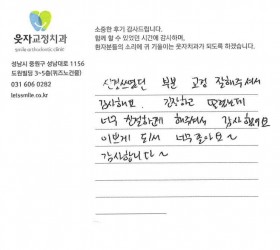 웃자교정치과
smile orthodontic clinic
성남시 중원구 성남대로 1156
도원빌딩 3~5층(위즈노건물)
031 606 0282
letssmile.co.kr
소중한 후기 감사드립니다.
함께 할 수 있었던 시간에 감사하며,
환자분들의 소리에 귀 기울이는 웃자치과가 되도록 하겠습니다.
신경쓰였던 부분 교정 잘해주셔서
감사해요. 긴장하고
너무 친절하게 해주셔서 감사했어요
이쁘게 되서 너무 좋아요~
감사합니다~